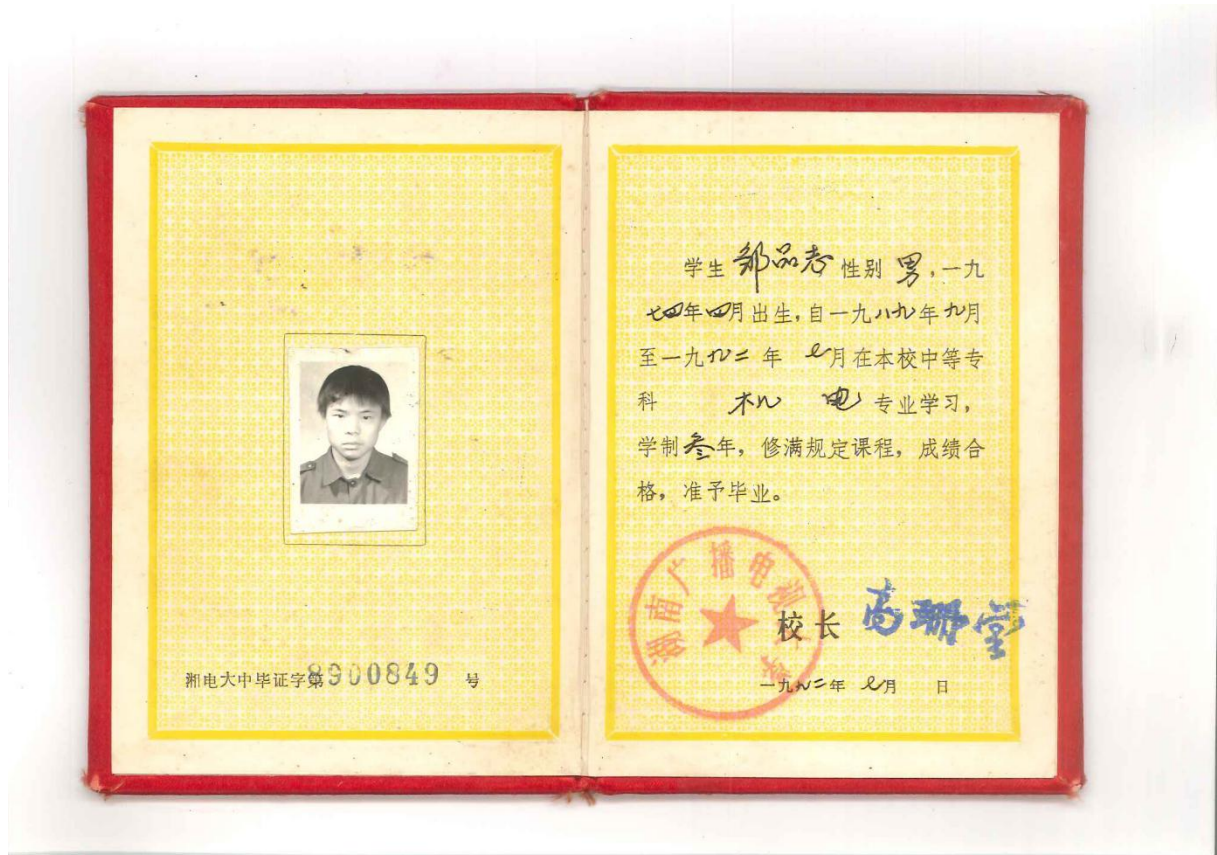 湘电大中毕证字第8900849 号
学生 邹品志 性别 男,一九
七四年四月出生,自一九八九年九月
至一九九二 年 七月在本校中等专
科 机 电 专业学习,
学制叁年,修满规定课程,成绩合
格,准予毕业。
湖南广播电视大学
校长
一九九二年 七月 日